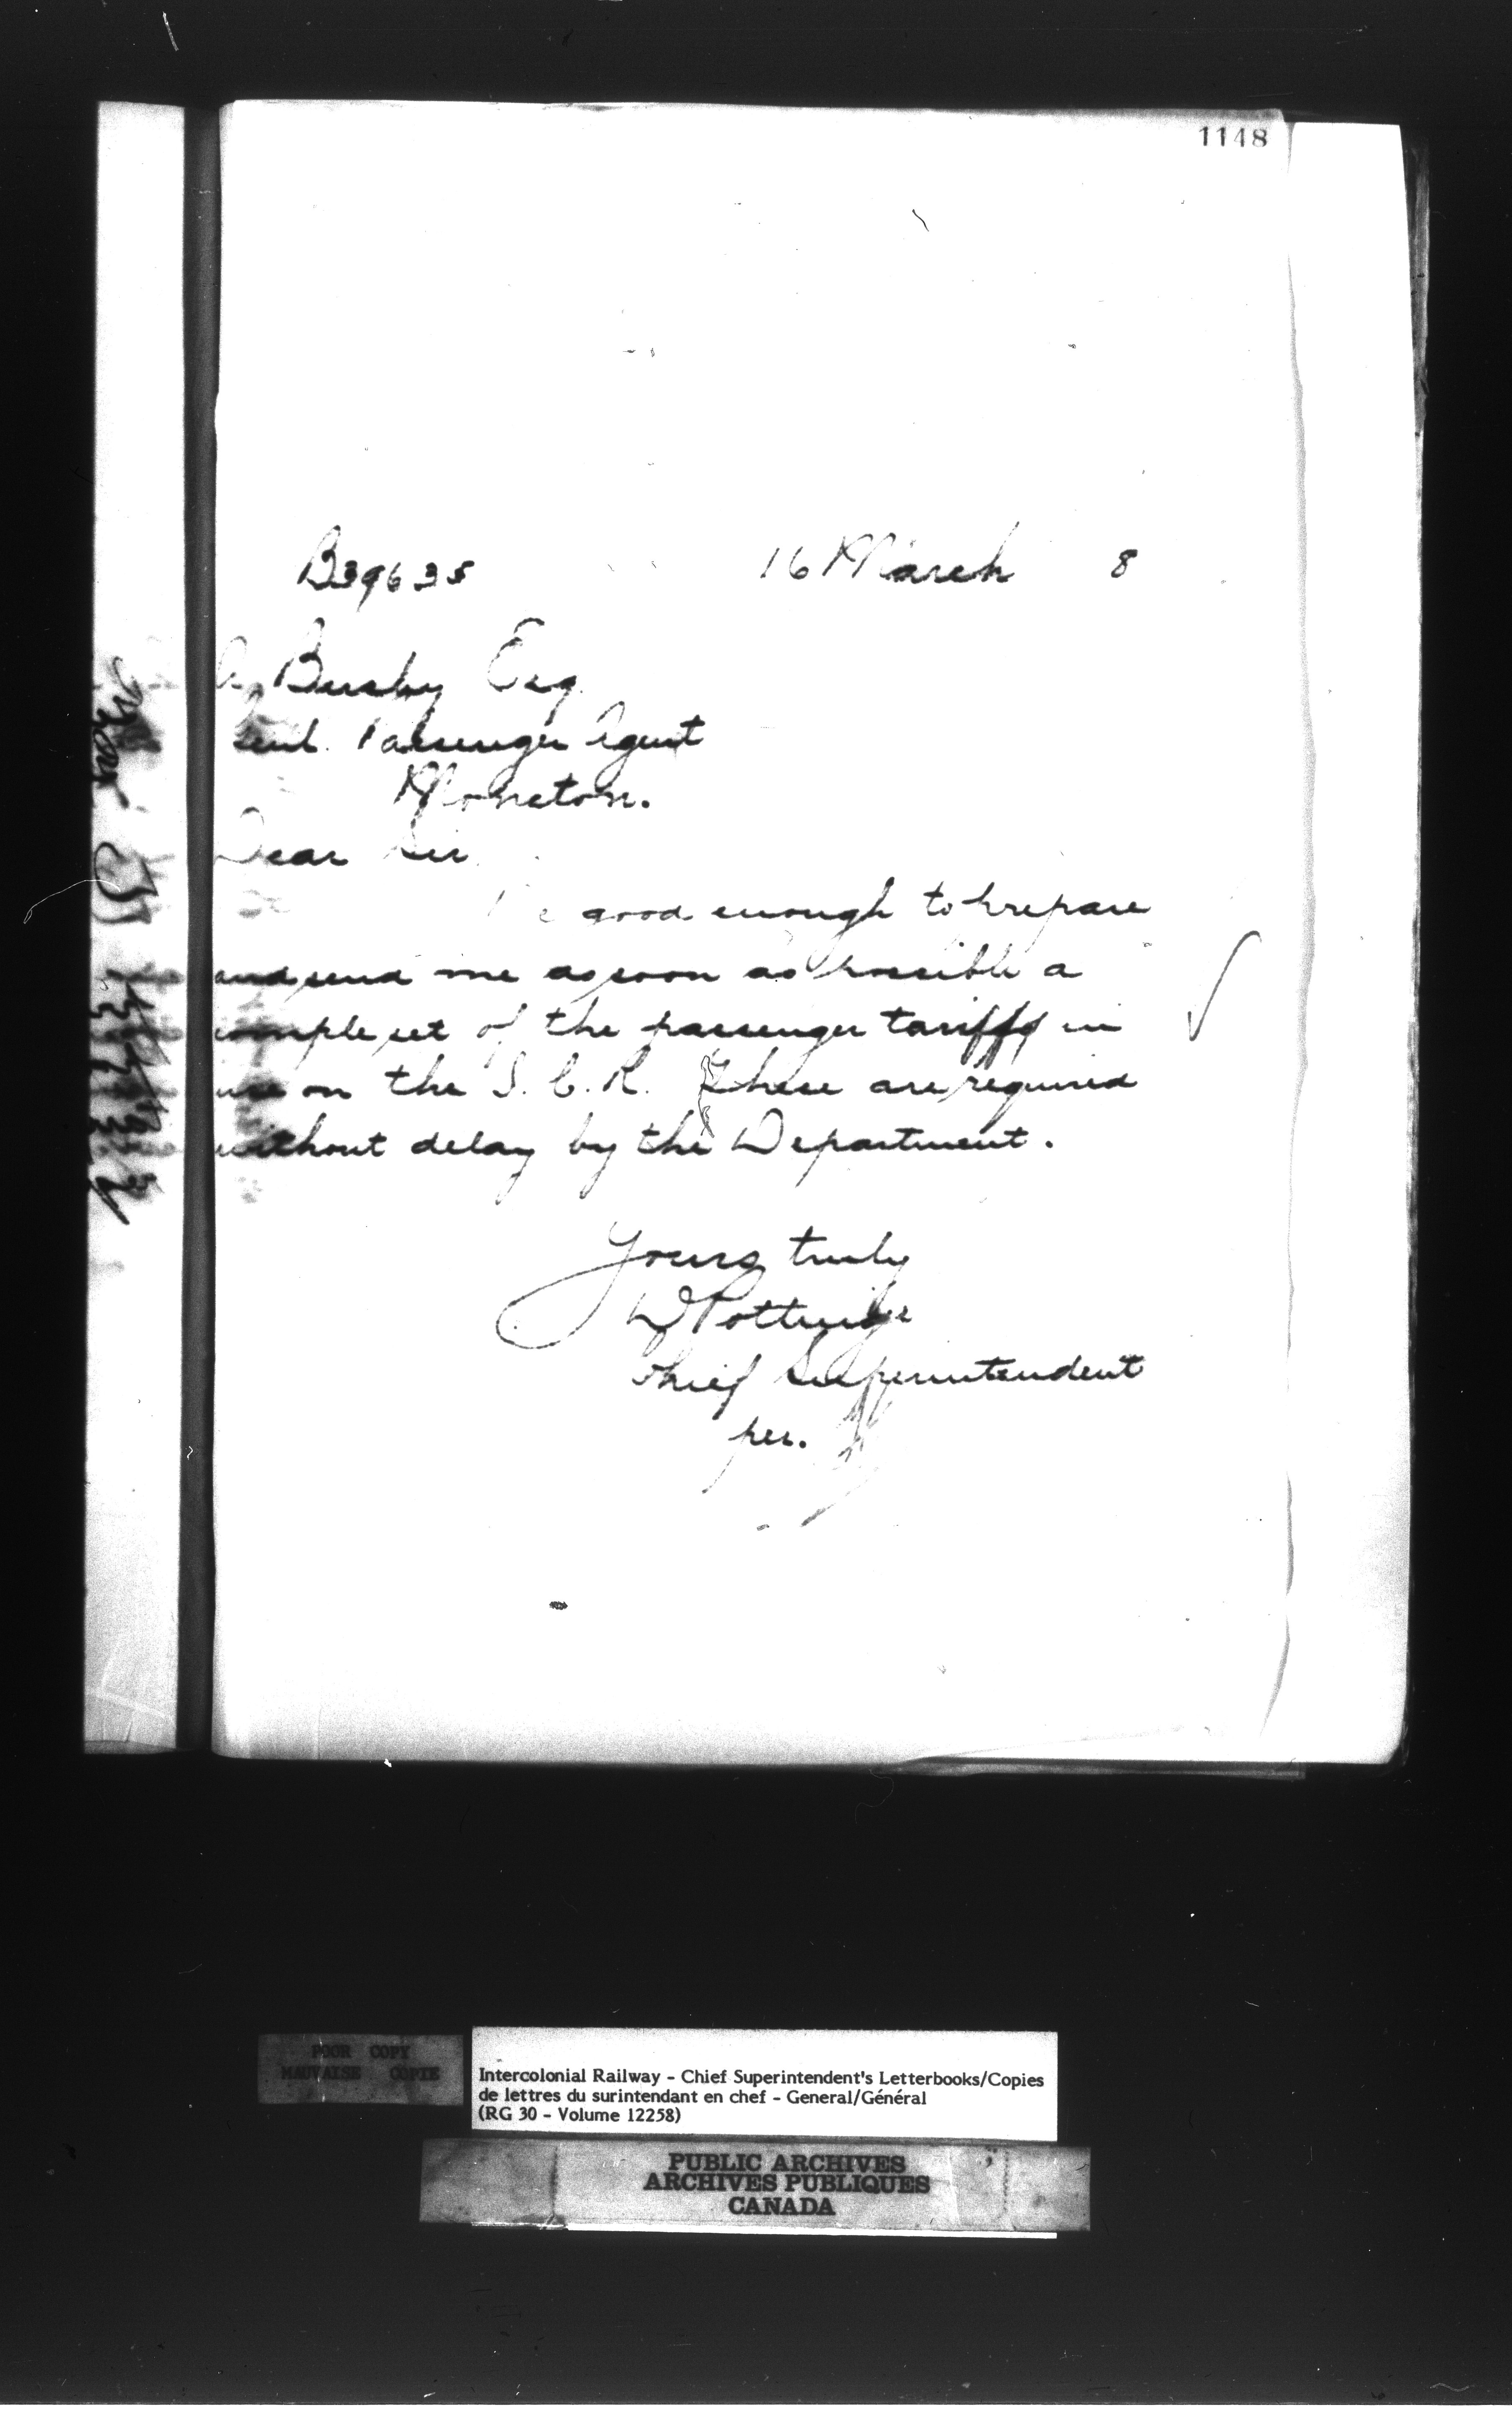 1148
B39635 16 March 8
A. Busby Esq.
Genl. Passenger Agent
Moncton.
Dear Sir
Be good enough to prepare
and send me as soon as possible a
comple set of the passenger tariffs in
use on the I.C.R. These are required
without delay by the Department.
Yours truly
D Pottinger
Chief Superintendent
per.
POOR COPY
MAUVAISE COPIE
Intercolonial Railway - Chief Superintendent's Letterbooks/Copies
de lettres du surintendant en chef - General/Général
(RG 30 - Volume 12258)
PUBLIC ARCHIVES
ARCHIVES PUBLIQUES
CANADA